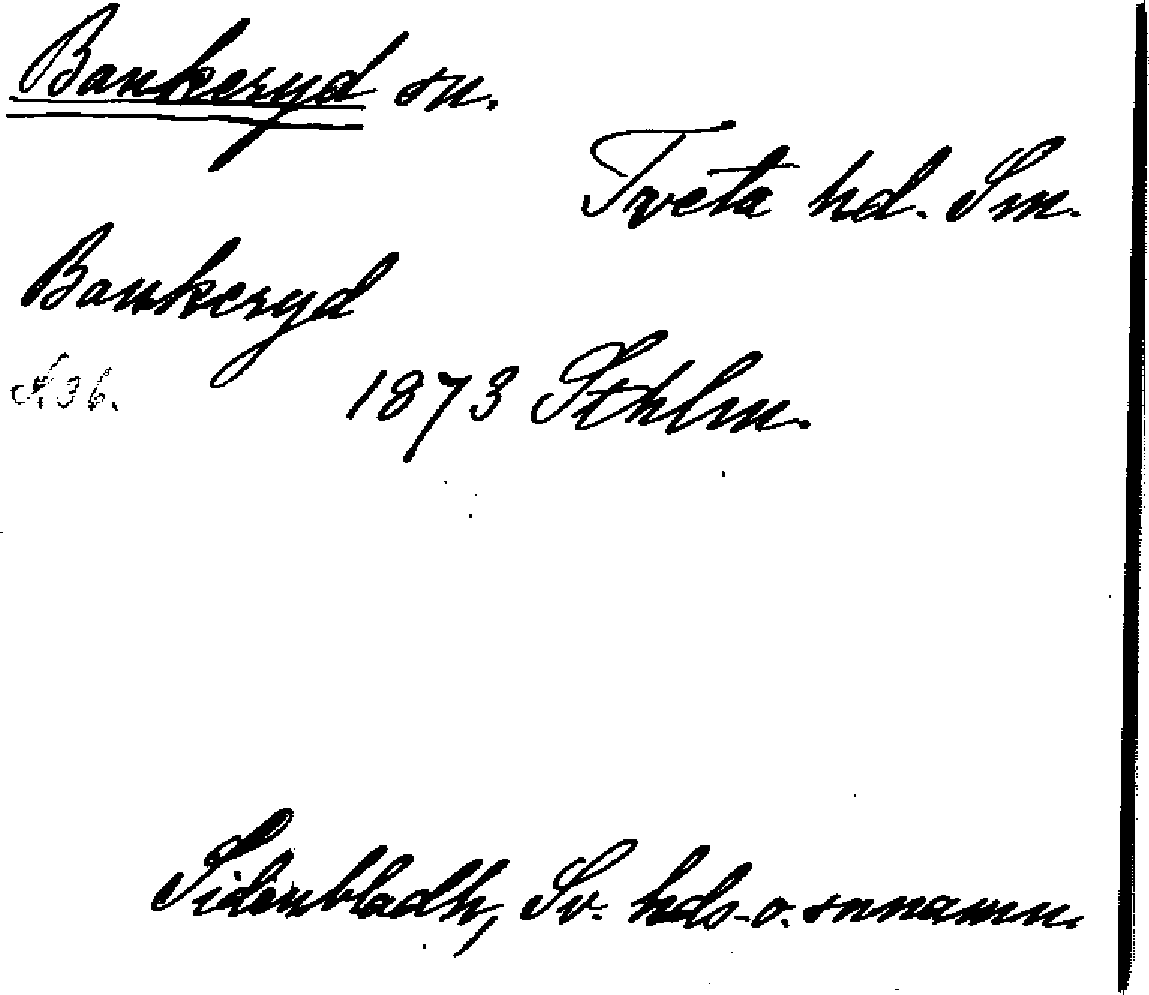 Bankeryd sn.
Tveta hd. Sm.
Bankeryd
A36. 1873 Sthlm.
Sidenbladh, Sv. hds- o. snnamn.